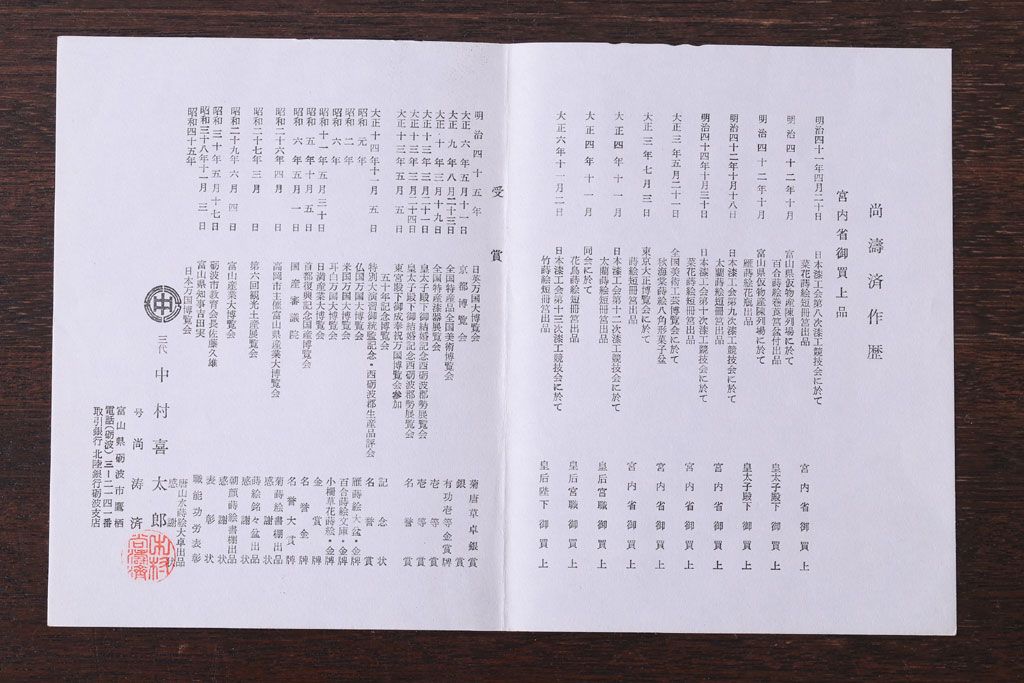 尚濤済作歴
宮内省御買上品
明治四十一年四月二十日
日本漆工会第八次漆工競技会に於て
菜花蒔絵短冊筥出品
宮内省御買上
明治四十二年十月
富山県仮物産陳列場に於て
百合蒔絵巻莨筥盆付出品
皇太子殿下御買上
明治四十二年十月
富山県仮物産陳列場に於て
雁蒔絵花瓶出品
皇太子殿下御買上
明治四十二年十月十八日
日本漆工会第九次漆工競技会に於て
太蘭蒔絵短冊筥出品
宮内省御買上
明治四十四年十月三十日
日本漆工会第十次漆工競技会に於て
菜花蒔絵短冊筥出品
宮内省御買上
大正三年五月二十一日
全国美術工芸博覧会に於て
秋海棠蒔絵八角形菓子盆
宮内省御買上
大正三年七月三日
東京大正博覧会に於て
太蘭蒔絵短冊筥出品
宮内省御買上
大正四年十一月
日本漆工会第十二次漆工競技会に於て
皇后宮職御買上
大正四年十一月
同会に於て
花鳥蒔絵短冊筥出品
皇后宮職御買上
大正六年十一月二日
日本漆工会第十三次漆工競技会に於て
竹蒔絵短冊筥出品
皇后陛下御買上
受賞
明治四十五年
日本万国大博覧会
菊唐草卓銀賞
大正六年五月十一日
京都博覧会
銀賞
大正九年八月二十三日
全国特産品全国美術博覧会
有功壱等金賞牌
大正十年三月十九日
全国特産漆器展覧会
壱等賞
大正十三年三月二十一日
皇太子殿下御結婚記念西砺波郡勢展覧会
壱等賞
大正十三年三月二十四日
皇太子殿下御結婚記念西砺波郡勢展覧会
名誉賞
大正十三年五月五日
東宮殿下御成奉祝万国博覧会参加
五十年記念博覧会
記念状
大正十四年十一月五日
特別大演習御統監記念・西砺波郡生産品評会
名誉賞
昭和元年
仏国万国大博覧会
雁蒔絵大盆・金牌
昭和二年
米国万国大博覧会
百合蒔絵文庫・金牌
昭和六年
耳白万国大博覧会
小欄草花蒔絵・金牌
昭和十一年五月三十日
日満産業大博覧会
金牌
昭和五年十月五日
首都復興記念国産博覧会
名誉金牌
昭和六年五月一日
国産審議院
名誉大賞牌
昭和二十六年四月日
高岡市主催富山県高岡産業大博覧会
菊蒔絵書棚出品
感謝状
昭和二十七年三月日
第六回観光土産展覧会
蒔絵銘々盆出品
感謝状
昭和二十九年六月四日
富山産業大博覧会
朝顔蒔絵書棚出品
感謝状
昭和三十年五月十七日
砺波市教育会長佐藤久雄
表彰状
昭和三十八年十一月三日
富山県知事吉田実
職能功労表彰
昭和四十五年
日本万国博覧会
唐山水蒔絵大卓出品
感謝状
三代
中村喜太郎
号尚涛済
富山県砺波市鷹栖
電話(砺波)三-二一四一番
取引銀行 北陸銀行砺波支店